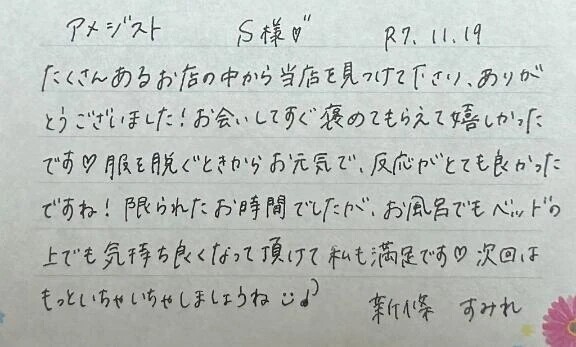 アメジスト S様♡ R7.11.19
たくさんあるお店の中から当店を見つけて下さり、ありが
とうございました!お会いしてすぐ褒めてもらえて嬉しかった
です♡服を脱ぐときからお元気で、反応がとても良かった
ですね!限られたお時間でしたが、お風呂でもベッドの
上でも気持ち良くなって頂けて私も満足です♡次回は
もっといちゃいちゃしましょうね 新條 すみれ